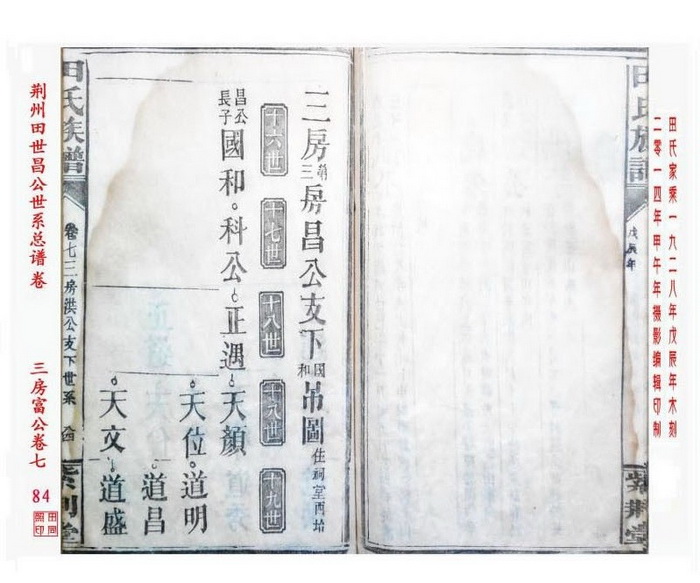 田氏家乘一九二八年戊辰年木刻
二零一四年甲午年摄影编辑印制
戊辰年
紫荆堂
三房三房昌公支下國和吊圖住祠堂西塆
十六世
十七世
十八世
十九世
十九世
昌公長子國和
科公
正遇
天顔
天位
道明
道昌
天文
道盛
田氏族譜
卷七三房洪公支下世系
荆州田世昌公世系总谱卷
三房富公卷七
84